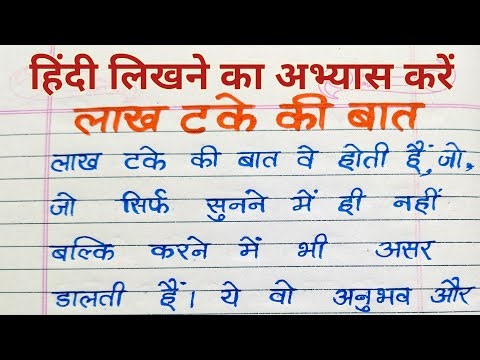 हिंदी लिखने का अभ्यास करें
लाख टके की बात
लाख टके की बात वे होती हैं, जो,
जो सिर्फ सुनने में ही नहीं
बल्कि करने में भी असर
डालती हैं। ये वो अनुभव और